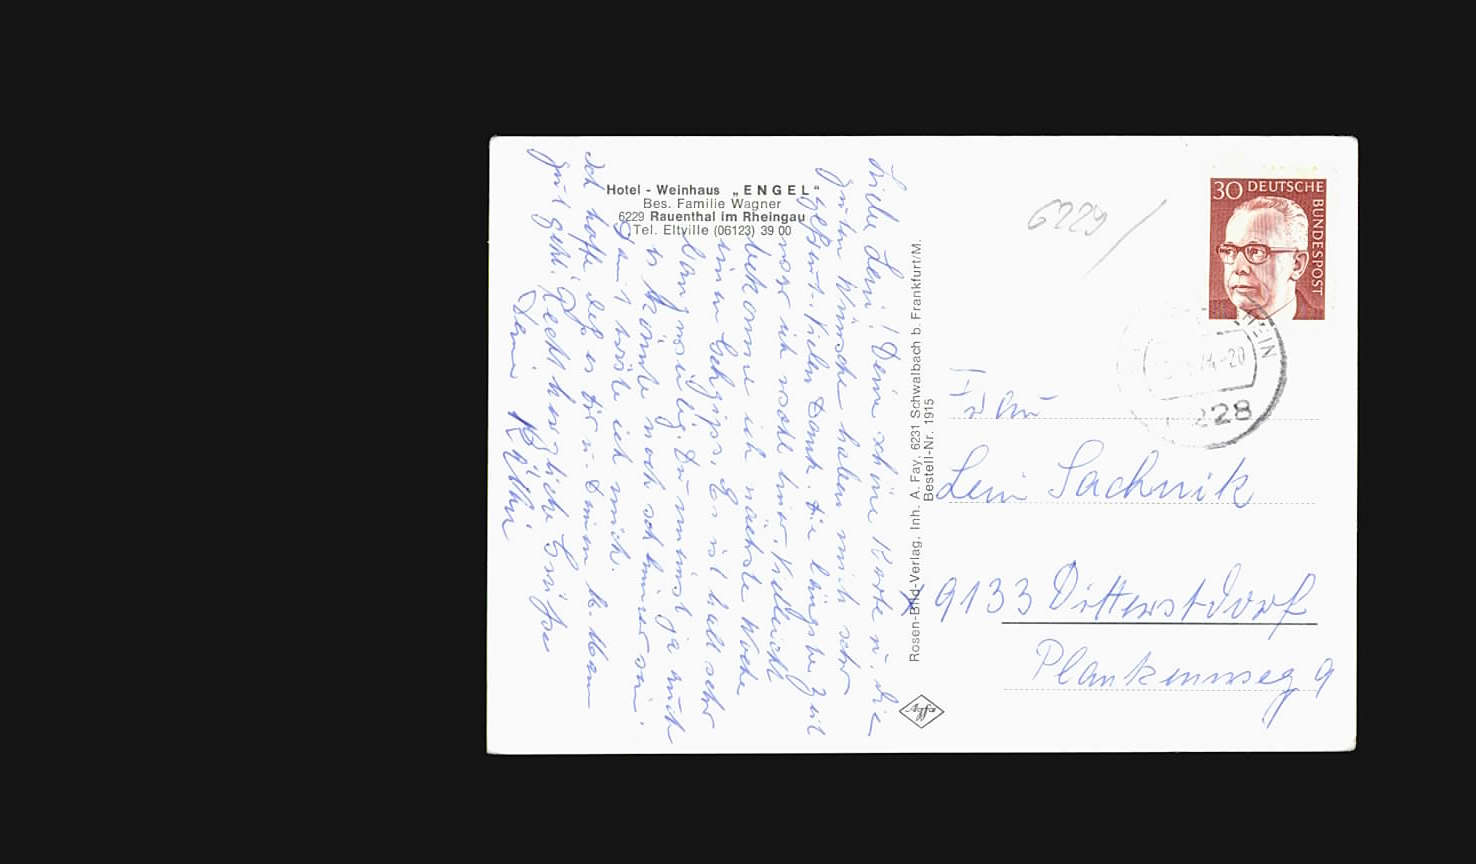 Hotel - Weinhaus „ENGEL“
Bes. Familie Wagner
6229 Rauenthal im Rheingau
Tel. Eltville (06123) 39 00
Liebe Leni! Deine schöne Karte u. die
guten Wünsche haben mich sehr
gefreut. Vielen Dank. Die längste Zeit
war ich wohl hier. Vielleicht
bekomme ich nächste Woche
einen Gehgips. Es ist halt sehr
langweilig. Du nimmst ja auch
es könnte noch schlimmer sein.
tröste ich mich.
Ich hoffe, daß es dir u. Deinen
gut geht. Recht herzliche Grüsse
Deine Käthi
Rosen-Bild-Verlag, Inh. A. Fay, 6231 Schwalbach b. Frankfurt/M.
Bestell-Nr. 1915
Agfa
6229
30 DEUTSCHE
BUNDESPOST
228
Frau
Leni Sachnik
9133 Ditterstdorf
Plankenweg 9